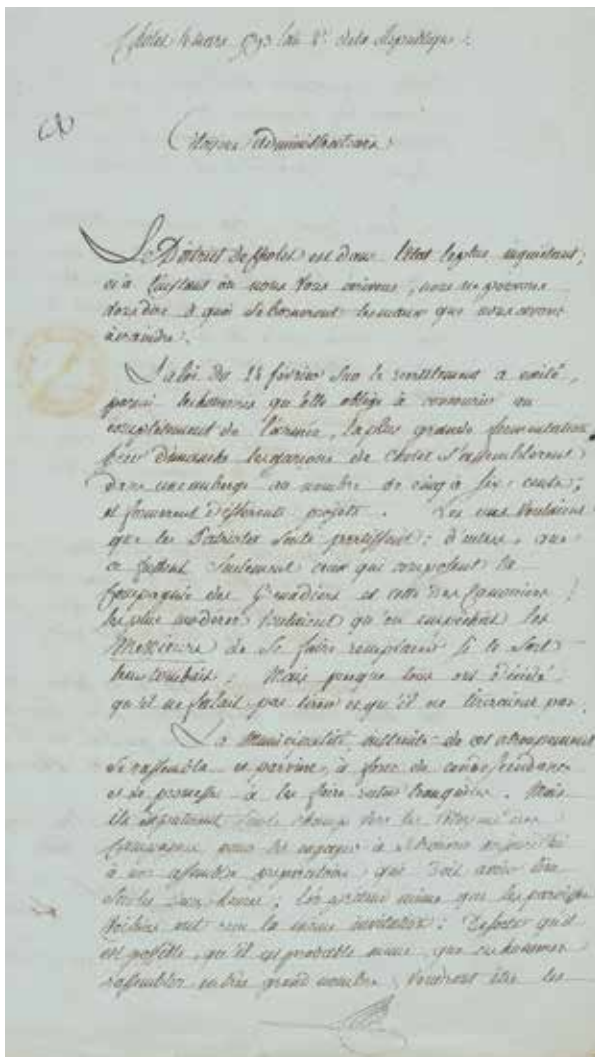 Cholet le mars 1793 l'an 2e de la République.
Citoyens administrateurs
Le District de Cholet est dans l'état le plus inquiétant,
et à l'instant où nous vous écrivons, nous ne pouvons
vous dire à quoi se borneront les maux que nous avons
à craindre.
La loi du 24 février sur le recrutement a excité,
parmi les hommes qu'elle oblige à concourir au
complétement de l'armée, la plus grande fermentation
hier dimanche les garçons de cholet s'assemblerent
dans une auberge au nombre de cinq à six cents,
et formerent differents projets. Les uns vouloient
que les Patriotes seuls partissent; d'autres, que
ce fussent seulement ceux qui composent la
Compagnie des Grenadiers et celle des Canoniers;
les plus moderés vouloient qu'on empechat les
Messieurs de se faire remplacer si le sort
leur tombait. Mais presque tous ont décidé
qu'il ne falait pas tirer et qu'il ne tireraient pas.
La Municipalité instruite de cet atroupement
se rassembla et parvint, à force de condescendance
et de promesse à les faire retirer tranquilles. Mais
ils
à une assemblée preparatoire qui doit avoir lieu
même que les paroisses
voisines ont reçu la même invitation; De sorte qu'il
est possible, qu'il est probable même, que ces hommes
rassemblés en très grand nombre, voudront être les